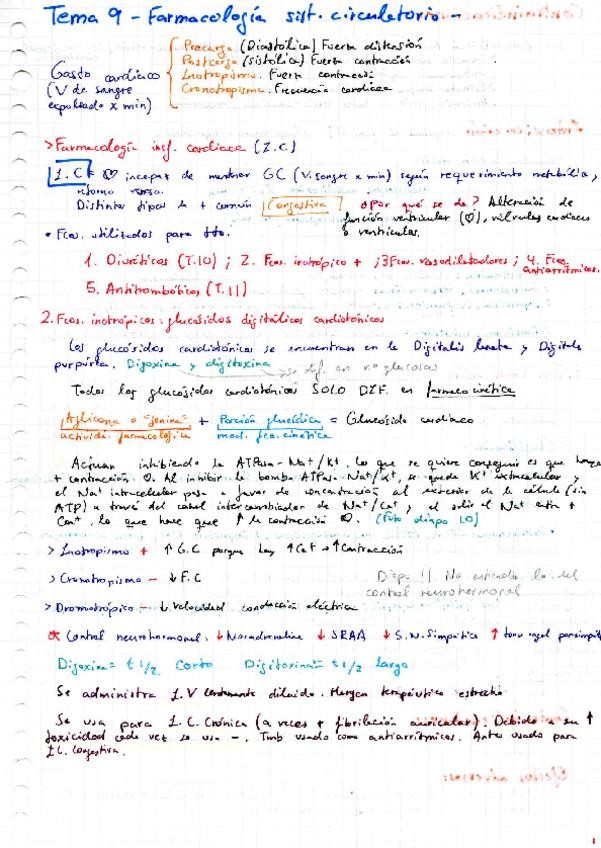 Tema 9 - Farmacología sist. circulatorio -
Gasto cardiaco
(V de sangre
expulsado x min)
Precarga (Diastólica) Fuerza distensión
Postcarga (sistólica) Fuerza contracción
Inotropismo. Fuerza contracció
Cronotropismo. Frecuencia cardiaca
> Farmacología insf. cardiaca (I.C)
I.C = ♡ incapaz de mantener GC (V. sangre x min) según requerimiento metabólico,
retorno venoso.
Distintos tipos la + común Congestiva ¿Por qué se da? Alteración de
función ventricular (♡), válvulas cardiacas
o ventriculas.
• Fcos. utilizados para tto.
1. Diuréticos (T.10) ; 2. Fcos. inotrópico + ; 3 Fcos. vasodilatadores ; 4. Fcos
antiarrítmicos.
5. Antitrombóticos (T.11)
2. Fcos. inotrópicos: glucósidos digitálicos cardiotónicos
Los glucósidos cardiotónicos se encuentran en la Digitalis lanata y Digitalis
purpúrea. Digoxina y digitoxina
se dif. en nº glucosas
Todos los glucósidos cardiotónicos SOLO DIF. en farmacocinética
Aglicona o "genina" + Porción glucídica = Glucósido cardiaco
activida. farmacológica mod. fcocinética
Actúan inhibiendo la ATPasa - Na⁺/K⁺. Lo que se quiere conseguir es que haya
+ contracción ♡. Al inhibir la bomba ATPasa Na⁺/K⁺, se queda K⁺ extracelular y
el Na⁺ intracelular pasa a favor de concentración al exterior de la célula (sin
ATP) a través del canal intercambiador de Na⁺/Ca⁺, y al salir el Na⁺ entra +
Ca⁺, lo que hace que ↑ la contracción ♡. (Foto diapo 10)
> Inotropismo + ↑ G.C porque hay ↑ Ca⁺ → ↑ Contracción
> Cronotropismo - ↓ F.C
Diapo 11. No entiendo lo del
control neurohormonal
> Dromotrópico - ↓ velocidad conducción eléctrica
* Control neurohormonal. ↓ Noradrenalina ↓ SRAA ↓ S.N. Simpática ↑ tono vagal parasimpát
Digoxina = t 1/2 corto Digitoxina = t 1/2 largo
Se administra I.V lentamente diluido. Margen terapéutico estrecho
Se usa para I.C. Crónica (a veces + fibrilación auricular). Debido a su ↑
toxicidad cada vez se usa -. Tmb usado como antiarrítmicos. Antes usado para
I.C. Congestiva.
1